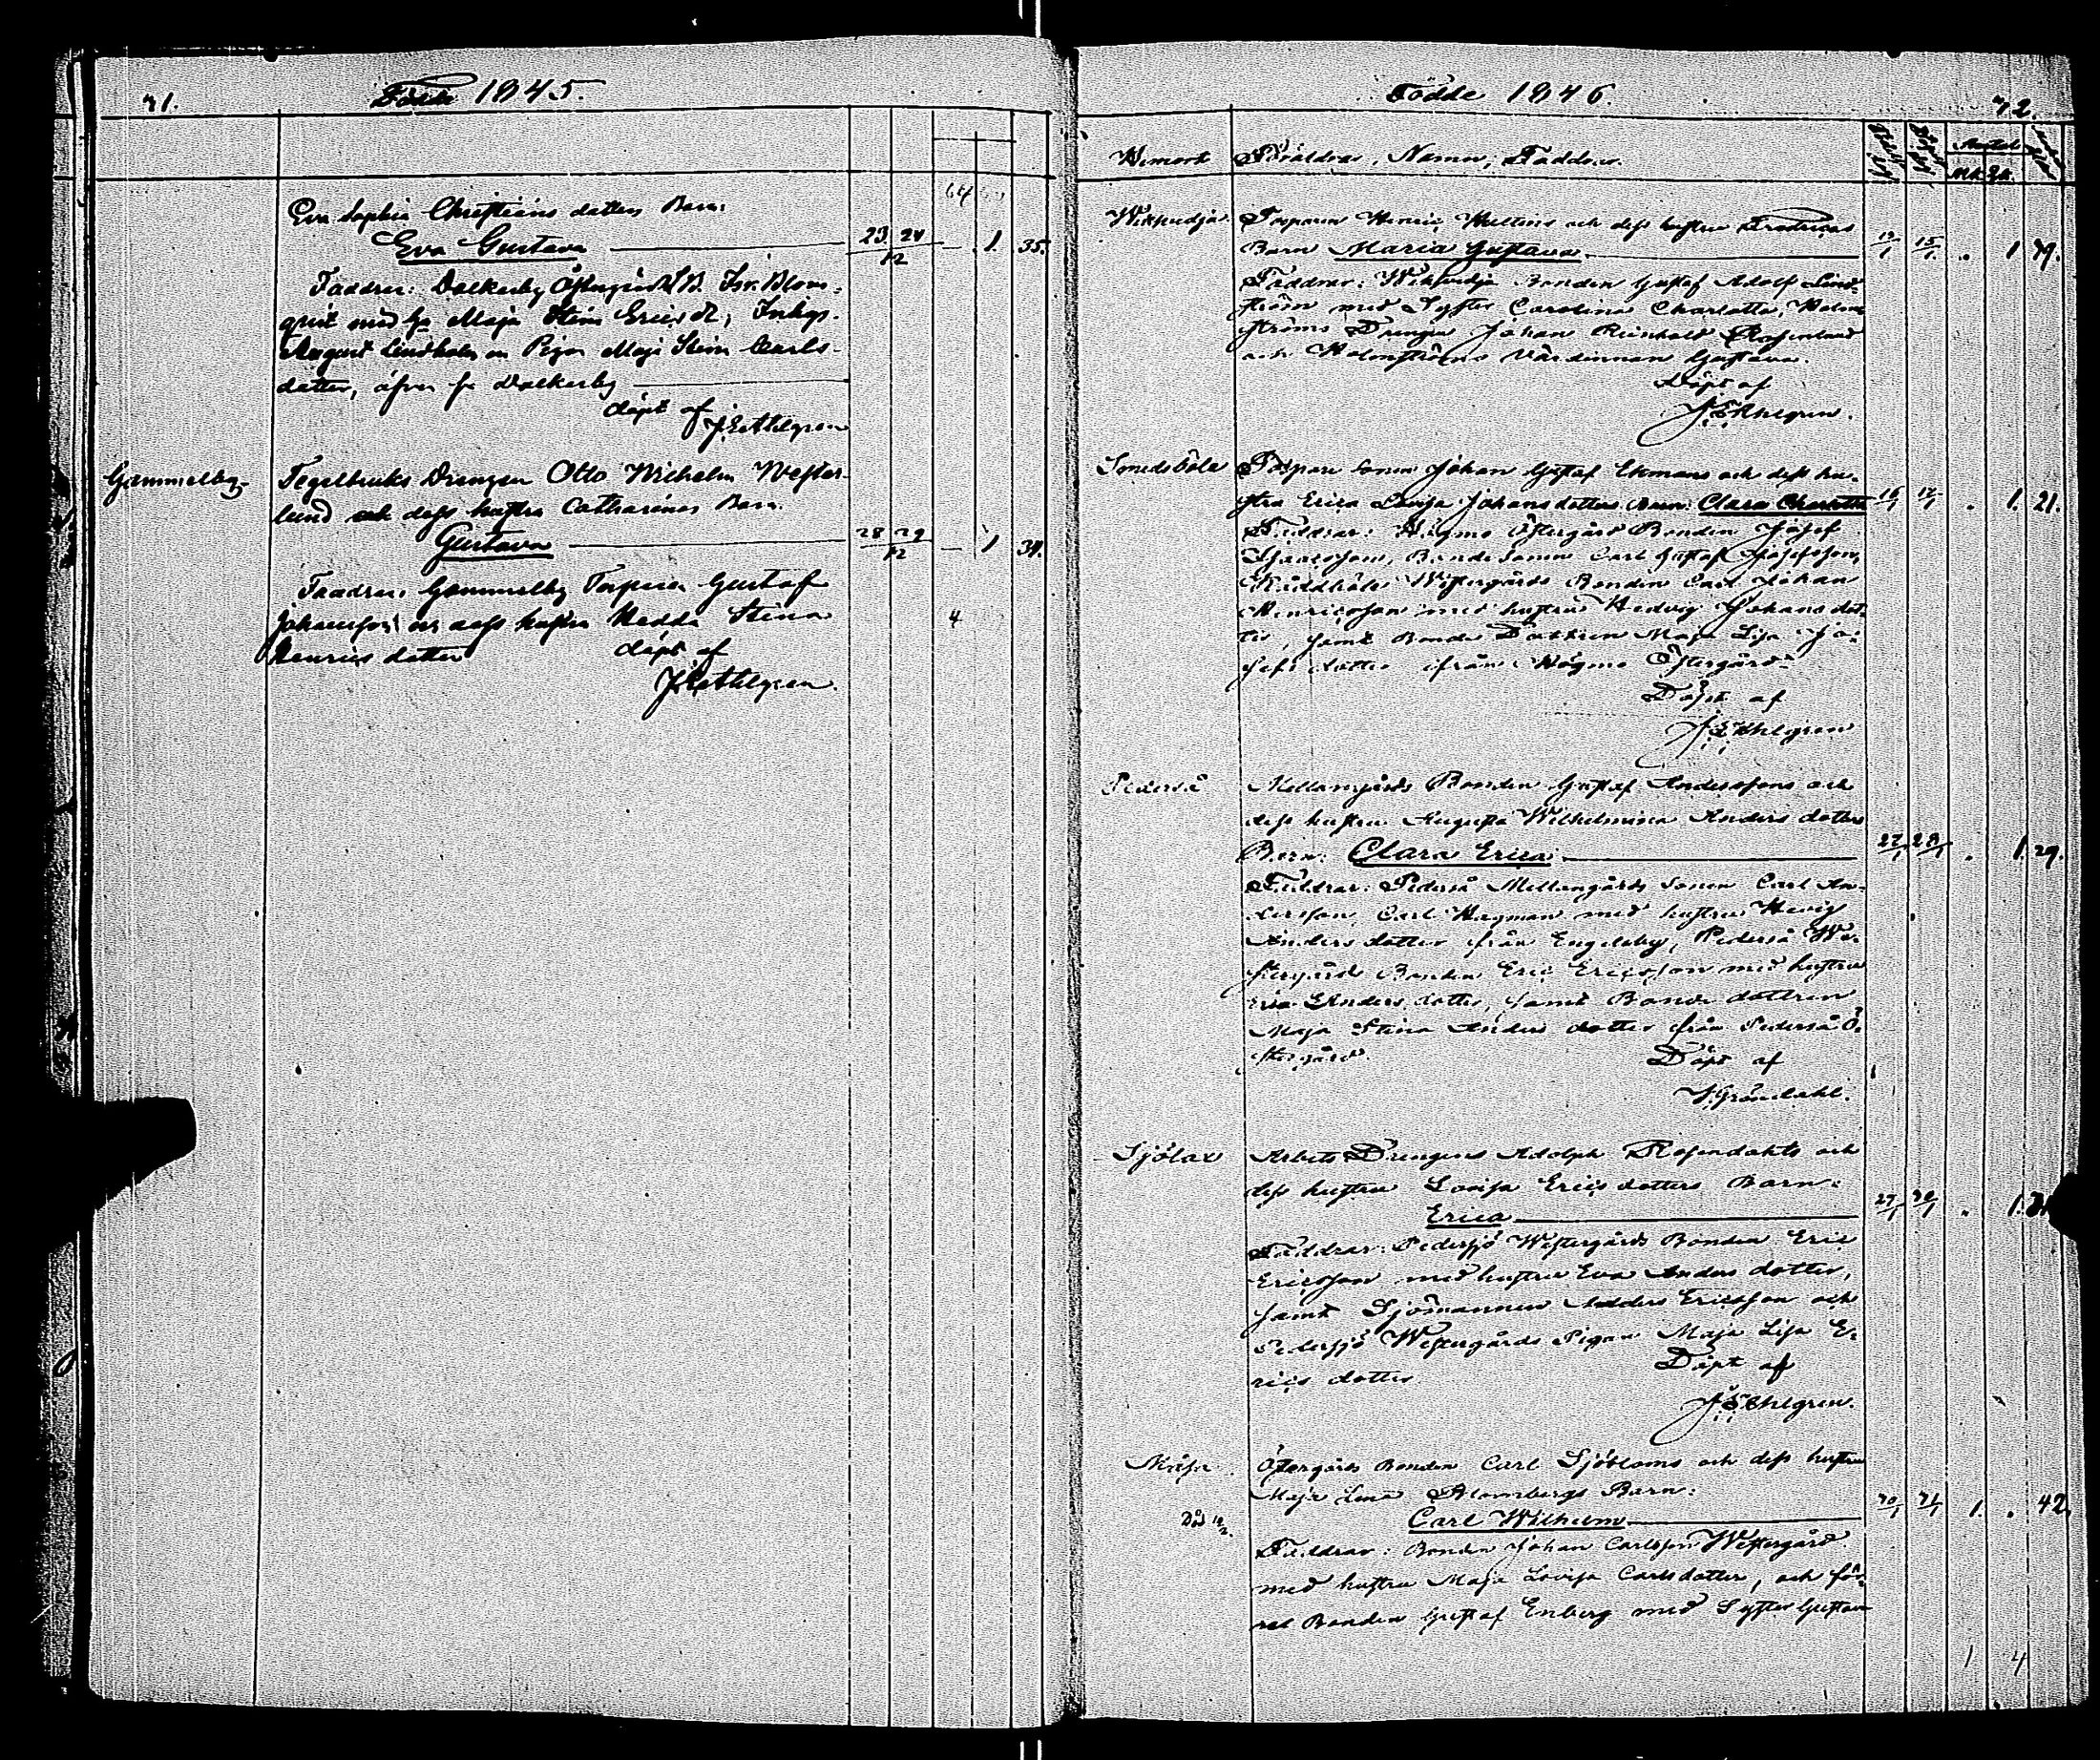 71.
Födde 1845.
Eva Sophia Christians dotters Barn:
Eva Gustava 23 24 / 12 — 1 35.
Faddrar: Dalkarby Östergårds B. Isr. Blom-
quist med h. Maja Stina Erics dr, Inhys.
August Lindholm en Pigan Maja Stina Carls-
dotter, äfven fr Dalkarby
döpt af
J. E. Ahlgren
Gammelby Tegelbruks Drengen Otto Wilhelm Wester-
lund och dess hustru Catharinas Barn.
Gustava 28 29 / 12 — 1 34.
Faddrar: Gammelby Torparen Gustaf
Johansson och dess hustru Hedda Stina
Henrics dotter döpt af
J. E. Ahlgren.
4
Födde 1846.
72.
Hemort Föräldrar, Namn, Faddrar.
Torparen Henric Hulténs och dess hustru Fredricas
Barn Maria Gustava. 1
Faddrar: Bonden Gustaf Adolf Lind-
ström med Syster Carolina Charlotta, Holm-
ströms Drengen Johan Reinhold
och Holmströms Värdinnan Gustava.
Döpt af
J. E. Ahlgren.
Smedsböle Torpare Sonen Johan Gustaf Ekmans och dess hu-
stru Erica Lovisa Johansdotters Barn: Clara Charlotta 1. 21.
Faddrar: Högmo Östergård Bonden Josef
Isaacsson, Bonde Sonen Carl Gustaf Josefsson,
Westergårds Bonden Carl Johan
Henricsson med hustru Hedvig Johans dot-
ter, samt Bonde Dottren Maja Lisa Jo-
sefs dotter ifrån Högmo Östergård.
Döpt af
J. E. Ahlgren
Pederså Mellangårds Bonden Gustaf Anderssons och
dess hustru Augusta Wilhelmina Anders dotters
Barn: Clara Erica 27/1 28/1 . 1. 29.
Faddrar: Pederså Mellangårds Sonen Carl An-
dersson, Carl Hagman med hustru Hevig
Anders dotter från Engelsby, Pederså We-
stergårds Bonden Eric Ericsson med hustru
Eva Anders dotter, samt Bonde dottren
Maja Stina Anders dotter från Pederså Ö-
stergård. Döpt af
Gröndahl.
Sjölax Arbets Drengens Adolph Rosendahls och
dess hustru Lovisa Erics dotters Barn:
Erica 27/1 30/1 . 1.
Faddrar: Pedersjö Westergårds Bonden Eric
Ericsson med hustru Eva Anders dotter,
samt Sjömannen Anders Ericsson och
Pedersjö Westergårds Pigan Maja Lisa E-
rics dotter Döpt af
J. E. Ahlgren.
Östergårds Bonden Carl Sjöbloms och dess hustru
Maja Lena Blombergs Barn:
Död
Carl Wilhelm 30/1 31/1 1. . 42.
Faddrar: Bonden Johan Carlsson Westergård
med hustru Maja Lovisa Carlsdotter, och för-
ra Bonden Gustaf Enberg med Syster Gustava
1 4